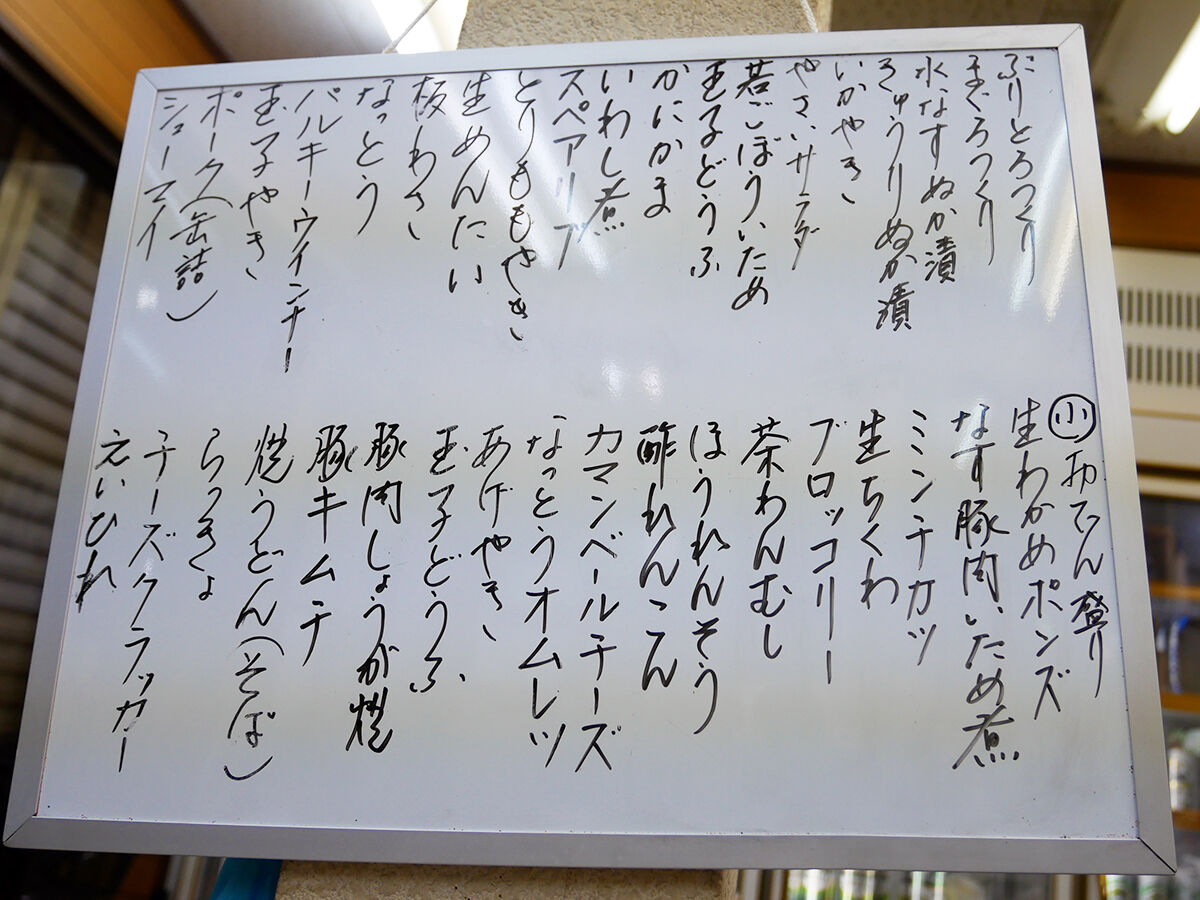 ぶりとろつくり
まぐろつくり
水なすぬか漬
きゅうりぬか漬
いかやき
やさいサラダ
若ごぼういため
玉子どうふ
かにかま
いわし煮
スペアリブ
とりももやき
生めんたい
板わさ
なっとう
パルキーウインナー
玉子やき
ポーク(缶詰)
シューマイ
小おでん盛り
生わかめポンズ
なす豚肉いため煮
ミンチカツ
生ちくわ
ブロッコリー
茶わんむし
ほうれんそう
酢れんこん
カマンベールチーズ
なっとうオムレツ
あげやき
玉子どうふ
豚肉しょうが焼
豚キムチ
焼うどん(そば)
らっきょ
チーズクラッカー
えいひれ